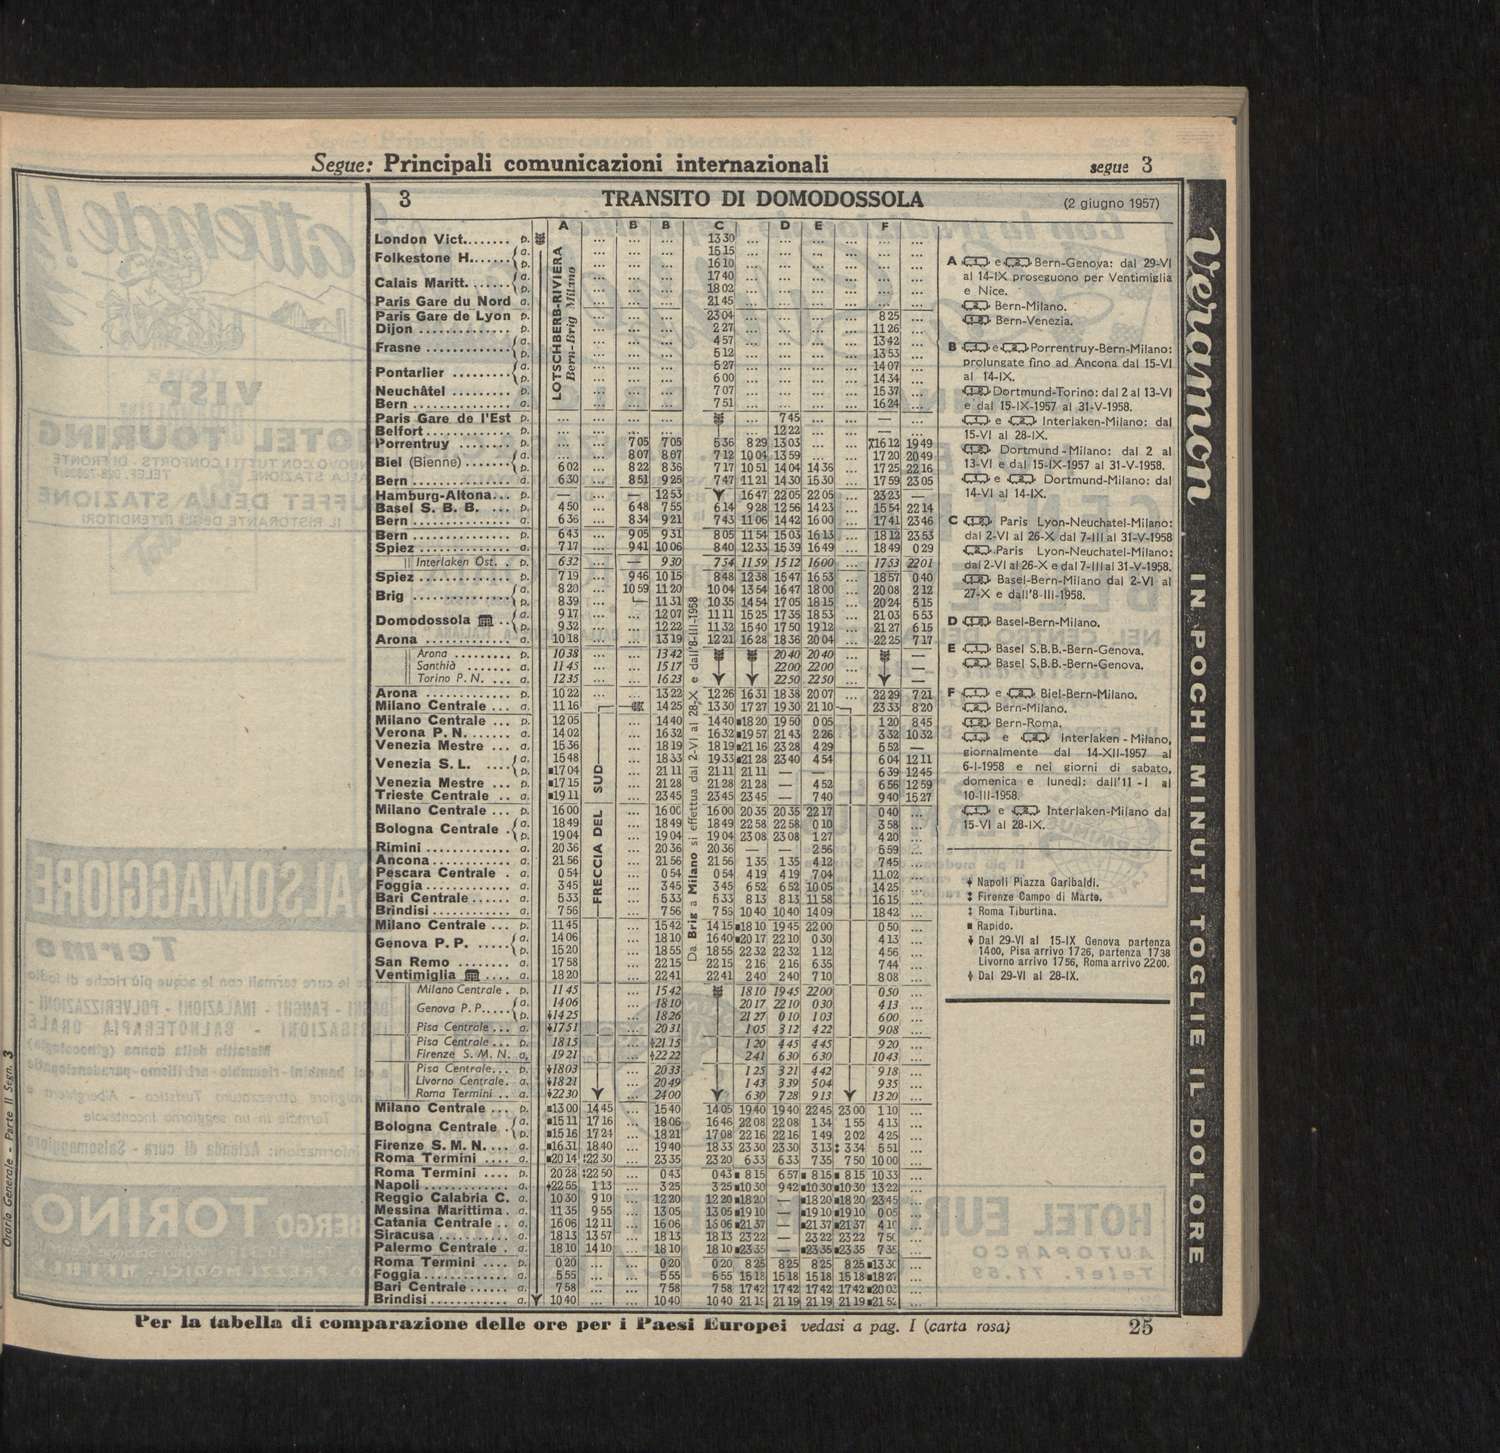 Segue: Principali comunicazioni internazionali segue 3
3 TRANSITO DI DOMODOSSOLA (2 giugno 1957)
A B B C D E F
London Vict....... p. ... ... ... 13 30 ... ... ... ... ... ...
Folkestone H...... a. ... ... ... 15 15 ... ... ... ... ... ...
p. ... ... ... 16 10 ... ... ... ... ... ...
Calais Maritt. ...... a. ... ... ... 17 40 ... ... ... ... ... ...
p. ... ... ... 18 02 ... ... ... ... ... ...
Paris Gare du Nord a. ... ... ... 21 45 ... ... ... ... ... ...
Paris Gare de Lyon p. ... ... ... 23 04 ... ... ... ... 8 25 ...
Dijon .............. p. ... ... ... 2 27 ... ... ... ... 11 26 ...
Frasne ............ a. ... ... ... 4 57 ... ... ... ... 13 42 ...
p. ... ... ... 5 12 ... ... ... ... 13 53 ...
Pontarlier ......... a. ... ... ... 5 27 ... ... ... ... 14 07 ...
p. ... ... ... 6 00 ... ... ... ... 14 34 ...
Neuchâtel ......... p. ... ... ... 7 07 ... ... ... ... 15 37 ...
Bern ............... a. ... ... ... 7 51 ... ... ... ... 16 24 ...
LOTSCHBERB-RIVIERA
Bern-Brig Milano
Paris Gare de l'Est p. ... ... ... ... ... 7 45 ... ... — ...
Belfort ............. p. ... ... ... ... ... 12 22 ... ... — ...
Porrentruy ........ p. ... ... 7 05 7 05 5 36 8 29 13 03 ... ... 16 12 19 49
Biel (Bienne) ....... a. ... ... 8 07 8 07 7 12 10 04 13 59 ... ... 17 20 20 49
p. 6 02 ... 8 22 8 36 7 17 10 51 14 04 14 36 ... 17 25 22 16
Bern ............... a. 6 30 ... 8 51 9 25 7 47 11 21 14 30 15 30 ... 17 59 23 05
Hamburg-Altona... p. — ... — 12 53 16 47 22 05 22 05 ... 23 23 —
Basel S. B. B. ... p. 4 50 ... 6 48 7 55 6 14 9 28 12 56 14 23 ... 15 54 22 14
Bern ............... a. 6 36 ... 8 34 9 21 7 43 11 06 14 42 16 00 ... 17 41 23 46
Bern ............... p. 6 43 ... 9 05 9 31 8 05 11 54 15 03 16 13 ... 18 12 23 53
Spiez .............. a. 7 17 ... 9 41 10 06 8 40 12 33 15 39 16 49 ... 18 49 0 29
Interlaken Ost. . p. 6 32 ... — 9 30 7 54 11 59 15 12 16 00 ... 17 53 22 01
Spiez .............. p. 7 19 ... 9 46 10 15 8 48 12 38 16 47 16 53 ... 18 57 0 40
Brig ............... a. 8 20 ... 10 59 11 20 10 04 13 54 16 47 18 00 ... 20 08 2 12
p. 8 39 ... 11 31 10 35 14 54 17 05 18 15 ... 20 24 5 15
Domodossola .. a. 9 17 ... ... 12 07 11 11 15 25 17 35 18 53 ... 21 03 5 53
p. 9 32 ... ... 12 22 11 32 15 40 17 50 19 12 ... 21 27 6 15
Arona ............. a. 10 18 ... ... 13 19 12 21 16 28 18 36 20 04 ... 22 25 7 17
Arona ......... p. 10 38 ... ... 13 42 20 40 20 40 ... —
Santhià ....... a. 11 45 ... ... 15 17 22 00 22 00 ... —
Torino P. N. ... a. 12 35 ... ... 16 23 22 50 22 50 ... —
Arona ............. p. 10 22 ... ... 13 22 12 26 16 31 18 38 20 07 ... 22 29 7 21
Milano Centrale ... a. 11 16 14 25 13 30 17 27 19 30 21 10 23 33 8 20
Milano Centrale ... p. 12 05 ... 14 40 14 40 ■18 20 19 50 0 05 1 20 8 45
Verona P. N. ...... a. 14 02 ... 16 32 16 32 ■19 57 21 43 2 26 3 32 10 32
Venezia Mestre ... a. 15 36 ... 18 19 18 19 ■21 16 23 28 4 29 5 52 —
Venezia S. L. .... a. 15 48 ... 18 33 19 33 ■21 28 23 40 4 54 6 04 12 11
p. ■17 04 ... 21 11 21 11 21 11 — — 6 39 12 45
Venezia Mestre ... p. ■17 15 ... 21 28 21 28 21 28 — 4 52 6 56 12 59
Trieste Centrale .. a. ■19 11 ... 23 45 23 45 23 45 — 7 40 9 40 15 27
Milano Centrale ... p. 16 00 ... 16 00 16 00 20 35 20 35 22 17 0 40 ...
Bologna Centrale . a. 18 49 ... 18 49 18 49 22 58 22 58 0 10 3 58 ...
p. 19 04 ... 19 04 19 04 23 08 23 08 1 27 4 20 ...
Rimini ............ a. 20 36 ... 20 36 20 36 — — 2 56 5 59 ...
Ancona ............ a. 21 56 ... 21 56 21 56 1 35 1 35 4 12 7 45 ...
Pescara Centrale . a. 0 54 ... 0 54 0 54 4 19 4 19 7 04 11.02 ...
Foggia ............ a. 3 45 ... 3 45 3 45 6 52 6 52 10 05 14 25 ...
Bari Centrale ...... a. 5 33 ... 5 33 5 33 8 13 8 13 11 58 16 15 ...
Brindisi ............ a. 7 56 ... 7 56 7 55 10 40 10 40 14 09 18 42 ...
FRECCIA DEL SUD
Da Brig a Milano si effettua dal 2-VI al 28-X e dall'8-III-1958
Milano Centrale ... p. 11 45 ... 15 42 14 15 ■18 10 19 45 22 00 0 50 ...
Genova P. P. ..... a. 14 06 ... 18 10 16 40 ■20 17 22 10 0 30 4 13 ...
p. 15 20 ... 18 55 18 55 22 32 22 32 1 12 4 56 ...
San Remo ........ a. 17 58 ... 22 15 22 15 2 16 2 16 6 35 7 44 ...
Ventimiglia .... a. 18 20 ... 22 41 22 41 2 40 2 40 7 10 8 08 ...
Milano Centrale . p. 11 45 ... 15 42 18 10 19 45 22 00 0 50 ...
Genova P. P. ..... a. 14 06 ... 18 10 20 17 22 10 0 30 4 13 ...
p. 14 25 ... 18 26 21 27 0 10 1 03 6 00 ...
Pisa Centrale ... a. 17 51 ... 20 31 1 05 3 12 4 22 9 08 ...
Pisa Centrale ... p. 18 15 ... 21 15 1 20 4 45 4 45 9 20 ...
Firenze S. M. N. a. 19 21 ... 22 22 2 41 6 30 6 30 10 43 ...
Pisa Centrale... p. 18 03 ... 20 33 1 25 3 21 4 42 9 18 ...
Livorno Centrale. a. 18 21 ... 20 49 1 43 3 39 5 04 9 35 ...
Roma Termini .. a. 22 30 ... 24 00 6 30 7 28 9 13 13 20 ...
Milano Centrale ... p. ■13 00 14 45 ... 15 40 14 05 19 40 19 40 22 45 23 00 1 10 ...
Bologna Centrale . a. ■15 11 17 16 ... 18 06 16 46 22 08 22 08 1 34 1 55 4 13 ...
p. ■15 16 17 24 ... 18 21 17 08 22 16 22 16 1 49 2 02 4 25 ...
Firenze S. M. N. ... a. ■16 31 18 40 ... 19 40 18 33 23 30 23 30 3 13 3 34 5 51 ...
Roma Termini .... a. ■20 14 ‡22 30 ... 23 35 23 20 6 33 6 33 7 35 7 50 10 00 ...
Roma Termini .... p. 20 28 ‡22 50 ... 0 43 0 43 ■ 8 15 6 57 ■ 8 15 ■ 8 15 10 33 ...
Napoli ............. a. 22 55 1 13 ... 3 25 3 25 ■10 30 9 42 ■10 30 ■10 30 13 22 ...
Reggio Calabria C. a. 10 30 9 10 ... 12 20 12 20 ■18 20 — ■18 20 ■18 20 23 45 ...
Messina Marittima . a. 11 35 9 55 ... 13 05 13 05 ■19 10 — ■19 10 ■19 10 0 05 ...
Catania Centrale .. a. 16 06 12 11 ... 16 06 16 06 ■21 37 — ■21 37 ■21 37 ...
Siracusa .......... a. 18 13 13 57 ... 18 13 18 13 23 22 — 23 22 23 22 ...
Palermo Centrale . a. 18 10 14 10 ... 18 10 18 10 ■23 35 — ■23 35 ■23 35 ...
Roma Termini .... p. 0 20 ... ... 0 20 0 20 8 25 8 25 8 25 8 25 ...
Foggia ............. a. 5 55 ... ... 5 55 6 55 15 18 15 18 15 18 15 18 ...
Bari Centrale ...... a. 7 58 ... ... 7 58 7 58 17 42 17 42 17 42 17 42 ...
Brindisi ............ a. 10 40 ... ... 10 40 10 40 21 19 21 19 21 19 ...
A e Bern-Genova: dal 29-VI
al 14-IX proseguono per Ventimiglia
e Nice.
Bern-Milano.
Bern-Venezia.
B e Porrentruy-Bern-Milano:
prolungate fino ad Ancona dal 15-VI
al 14-IX.
Dortmund-Torino: dal 2 al 13-VI
e dal 15-IX-1957 al 31-V-1958.
e Interlaken-Milano: dal
15-VI al 28-IX.
Dortmund - Milano: dal 2 al
13-VI e dal 15-IX-1957 al 31-V-1958.
e Dortmund-Milano: dal
14-VI al 14-IX.
C Paris Lyon-Neuchatel-Milano:
dal 2-VI al 26-X dal 7-III al 31-V-1958
Paris Lyon-Neuchatel-Milano:
dal 2-VI al 26-X e dal 7-III al 31-V-1958.
Basel-Bern-Milano dal 2-VI al
27-X e dall'8-III-1958.
D Basel-Bern-Milano.
E Basel S.B.B.-Bern-Genova.
Basel S.B.B.-Bern-Genova.
F e Biel-Bern-Milano.
Bern-Milano.
Bern-Roma.
e Interlaken - Milano,
giornalmente dal 14-XII-1957 al
6-I-1958 e nei giorni di sabato,
domenica e lunedì: dall'11 - I al
10-III-1958.
e Interlaken-Milano dal
15-VI al 28-IX.
Napoli Piazza Garibaldi.
Firenze Campo di Marte.
‡ Roma Tiburtina.
■ Rapido.
Dal 29-VI al 15-IX Genova partenza
1400, Pisa arrivo 1726, partenza 1738
Livorno arrivo 1756, Roma arrivo 2200.
Dal 29-VI al 28-IX.
Veramon IN POCHI MINUTI TOGLIE IL DOLORE
Orario Generale - Parte II Segn. 3
Per la tabella di comparazione delle ore per i Paesi Europei vedasi a pag. I (carta rosa) 25